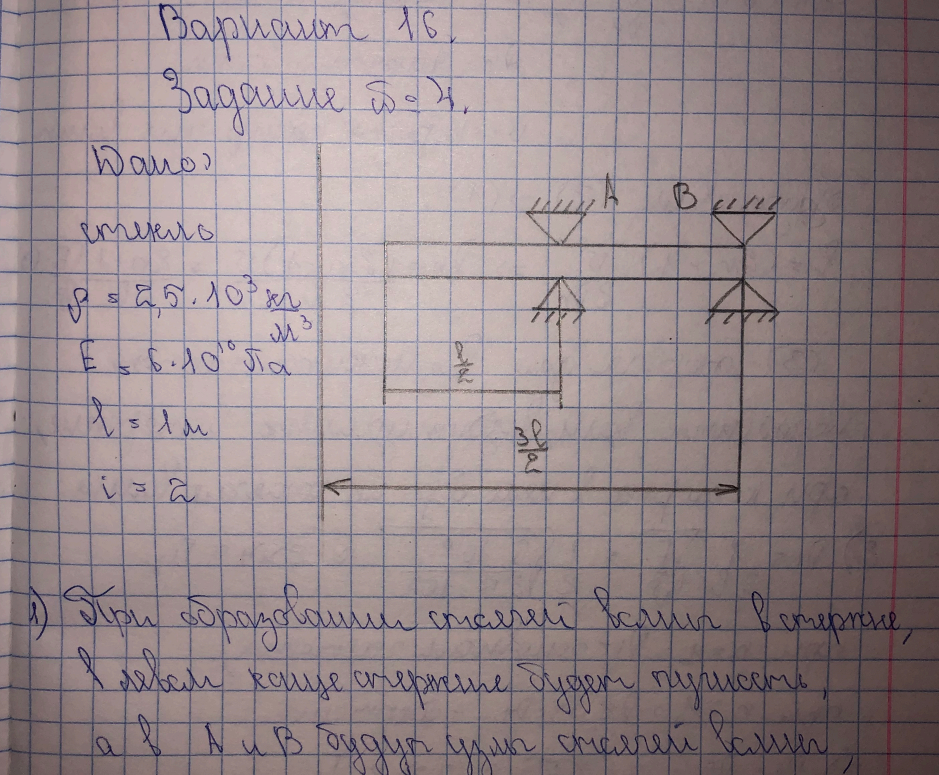 Вариант 16.
Задание n=4.
Дано:
стекло
ρ = 2,5·10³ кг/м³
E = 6·10¹⁰ Па
l = 1м
i = 2
A
B
l/2
3l/2
1) При образовании стоячей волны в стержне,
в левом конце стержня будет пучность,
а в А и В будут узлы стоячей волны,